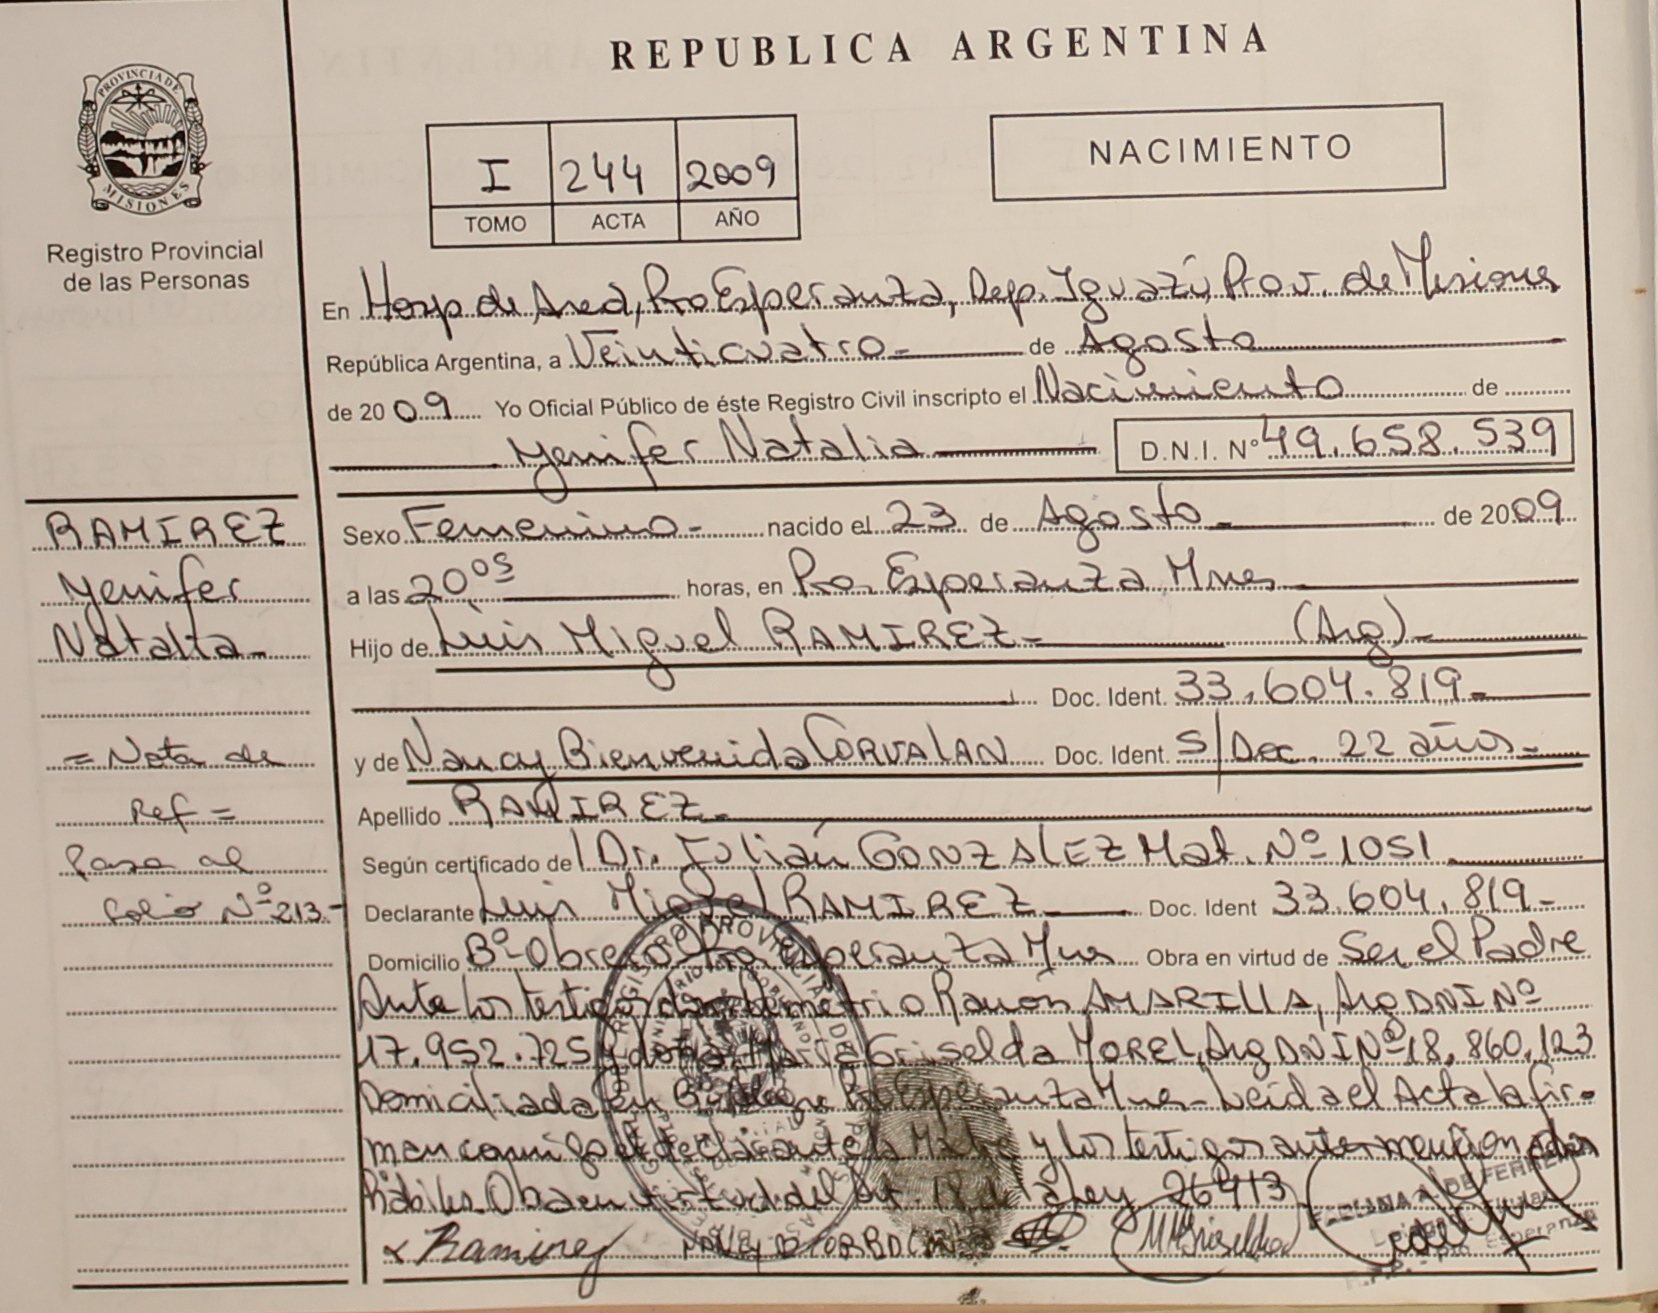 REPUBLICA ARGENTINA
PROVINCIA DE
MISIONES
Registro Provincial
de las Personas
I 244 2009
TOMO ACTA AÑO
NACIMIENTO
En Hosp de Area, Pto Esperanza, Dep. Iguazú, Prov. de Misiones
República Argentina, a Veinticuatro- de Agosto
de 2009 Yo Oficial Público de éste Registro Civil inscripto el Nacimiento de
Yenifer Natalia D.N.I. Nº 49.658.539
RAMIREZ
Yenifer
Natalia-
= Nota de
Ref =
Pasa al
folio Nº 213-
Sexo Femenino- nacido el 23 de Agosto- de 2009
a las 20:05 horas, en Pto. Esperanza, Mnes
Hijo de Luis Miguel RAMIREZ- (Arg)-
Doc. Ident. 33.604.819-
y de Nancy Bienvenida CORVALAN Doc. Ident. S/Doc. 22 años-
Apellido RAMIREZ-
Según certificado del Dr. Julián GONZALEZ Mat. Nº 1051
Declarante Luis Miguel RAMIREZ Doc. Ident 33.604.819-
Domicilio Bº Obrero Pto Esperanza Mnes Obra en virtud de Ser el Padre
Ante los testigos don Demetrio Ramón AMARILLA, Arg DNI Nº
17.952.725 y doña María Griselda MOREL, Arg DNI Nº 18.860.123
Domiciliada en Pto Esperanza Mnes- Leida el Acta la fir-
man conmigo el declarante la Madre y los testigos antes mencionados
Obra en virtud del Art. 18 de la Ley 26413
x Ramirez